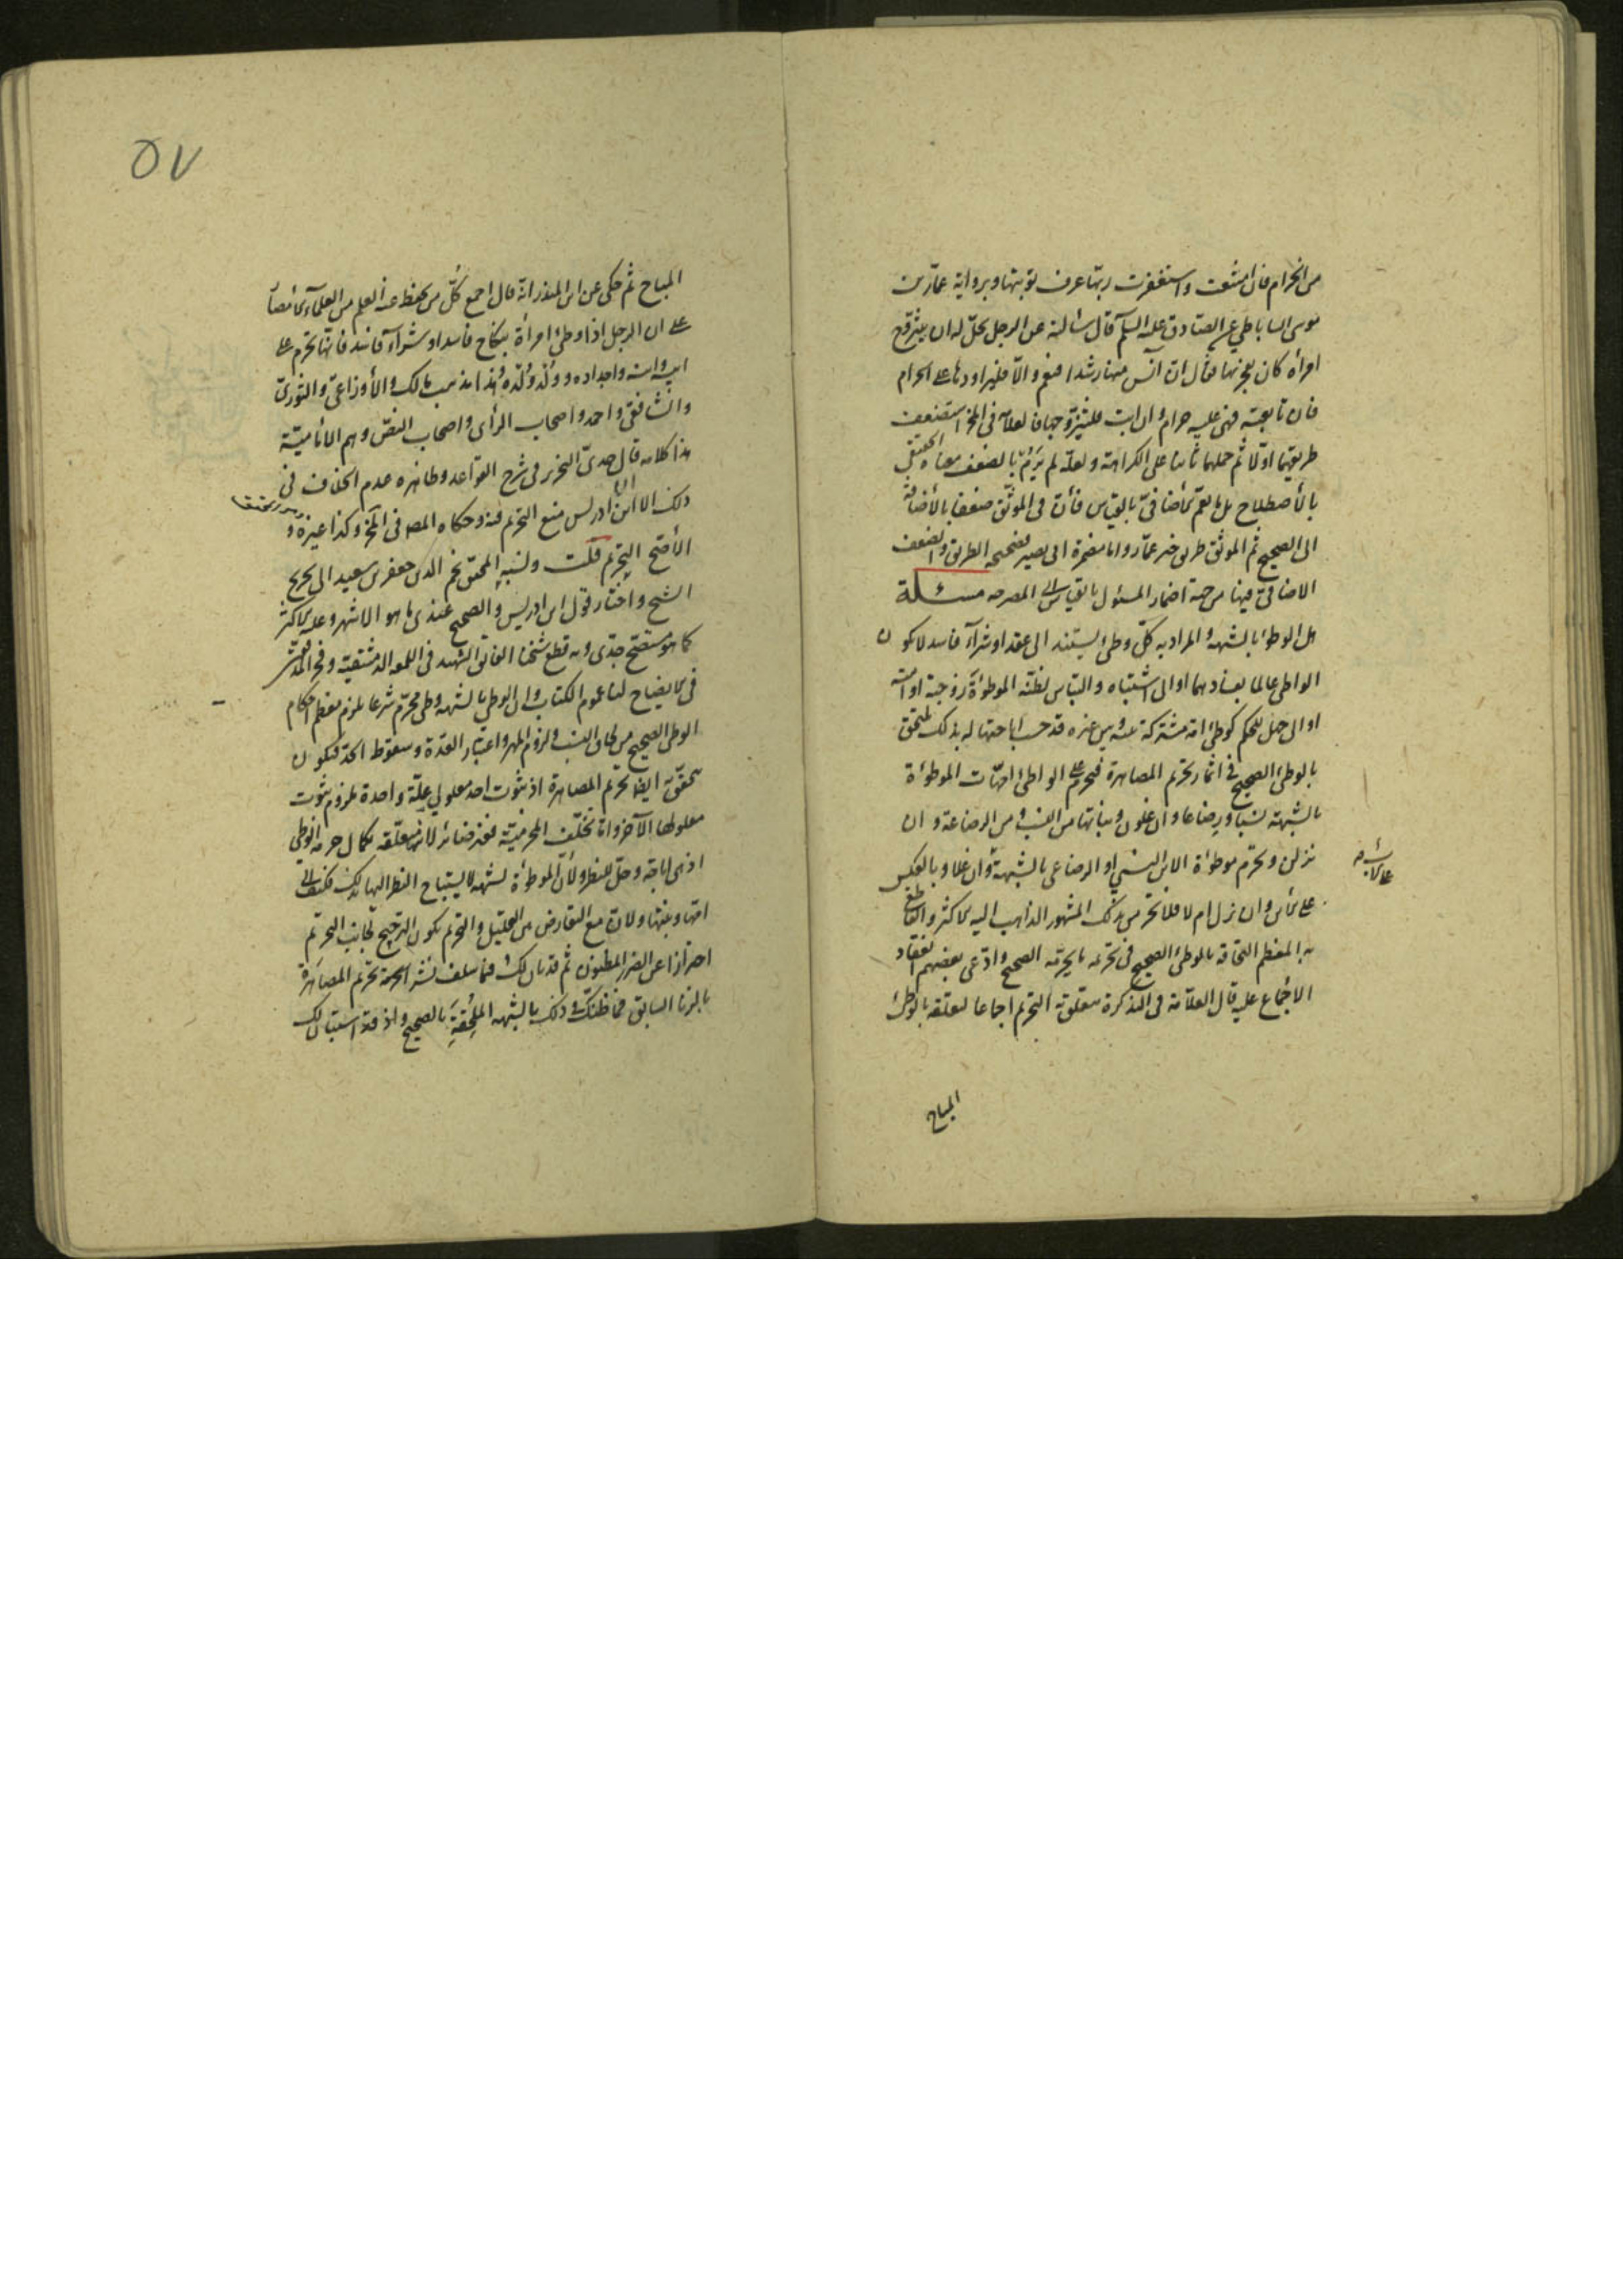 من الحرام فان امتنعت واستغفرت ربها عرف توبتها وبرواية عمار بن
موسى الساباطي عن الصادق عليه السلام قال سألته عن الرجل يحل له ان يتزوج
امرأة كان يفجر بها فقال ان آنس منها رشدا فنعم والا فليراودها على الحرام
فان تابعته فهي عليه حرام وان ابت فليتزوجها فالعلامة في المخ استضعف
طريقهما اولا ثم حملهما ثانيا على الكراهة ولعله لم يرم بالضعف معناه الحقيقي
بالاصطلاح بل ما يعم الاضافي بالقياس فان في الموثق ضعفا بالاضافة
الى الصحيح ثم الموثق طريق خبر عمار واما مضمرة ابي بصير فصحيحة الطريق والضعف
الاضافي فيها من جهة اضمار المسئول بالقياس الى المصرحة مسئلة
هل الوطئ بالشبهة والمراد به كل وطئ يستند الى عقد او شراء فاسد لا يكون
الواطي عالما بفسادهما او الى اشتباه والتباس لظنه الموطوءة زوجته او امته
او الى جهل بالحكم كوطئ امة مشتركة بينه وبين غيره قد حسب اباحتها له بذلك ملتحق
بالوطئ الصحيح في اثمار تحريم المصاهرة فيحرم على الواطئ امهات الموطوءة
بالشبهة نسبا ورضاعا وان علون وبناتها من النسب ومن الرضاعة وان
نزلن وتحرم موطوءة الابن النسبي او الرضاعي بالشبهة وان علا وبالعكس
على الابن وان نزل ام لا فلا تحرم بذلك المشهور الذاهب اليه الاكثر والقاطع
به المعظم التحاقه بالوطئ الصحيح في تحريمه ما يحرمه الصحيح وادعى بعضهم انعقاد
الاجماع عليه قال العلامة في التذكرة يتعلق به التحريم اجماعا لتعلقه بالوطئ
المباح
المباح ثم حكى عن ابن المنذر انه قال اجمع كل من يحفظ عنه العلم من العلماء
على ان الرجل اذا وطئ امرأة بنكاح فاسد او شراء فاسد فانها تحرم على
ابيه وابنه واجداده وولد ولده وهذا مذهب مالك والأوزاعي والثوري
والشافعي واحمد واصحاب الرأي واصحاب النص وهم الامامية
هذا كلامه قال جدي النحرير في شرح القواعد وظاهره عدم الخلاف في
ذلك الا ان ابن ادريس منع التحريم فيه وحكاه المصه في المخ وكذا غيره و
الأصح التحريم قلت ونسبه المحقق نجم الدين جعفر بن سعيد الى تخريج
الشيخ واختار قول ابن ادريس والصحيح عندي ما هو الاشهر وعليه الاكثر
كما هو مستصح جدي وبه قطع شيخنا الفائق الشهيد في اللمعة الدمشقية وفخر المدققين
في الايضاح لنا عموم الكتاب وان الوطي بالشبهة وطي محترم شرعا يلزم معظم احكام
الوطئ الصحيح من لحاق النسب ولزوم المهر واعتبار العدة وسقوط الحد فيكون
يتحقق ايضا تحريم المصاهرة اذ ثبوت احد معلولي علة واحدة يلزم ثبوت
معلولها الآخر وانما تخلف المحرمية فغير ضائر لانها متعلقة بكمال حرمة الوطي
اذ هي اباحة وحل للنظر ولان الموطوءة لشبهة لا يستباح النظر اليها بذلك فكيف الى
امها وبنتها ولان مع التعارض بين التحليل والتحريم يكون الترجيح لجانب التحريم
احترازا عن الضرر المظنون ثم قد بان لك فيما سلف نشر الحرمة تحريم المصاهرة
بالزنا السابق فما ظنك في ذلك بالشبهة الملحقة بالصحيح واذ قد استبان لك